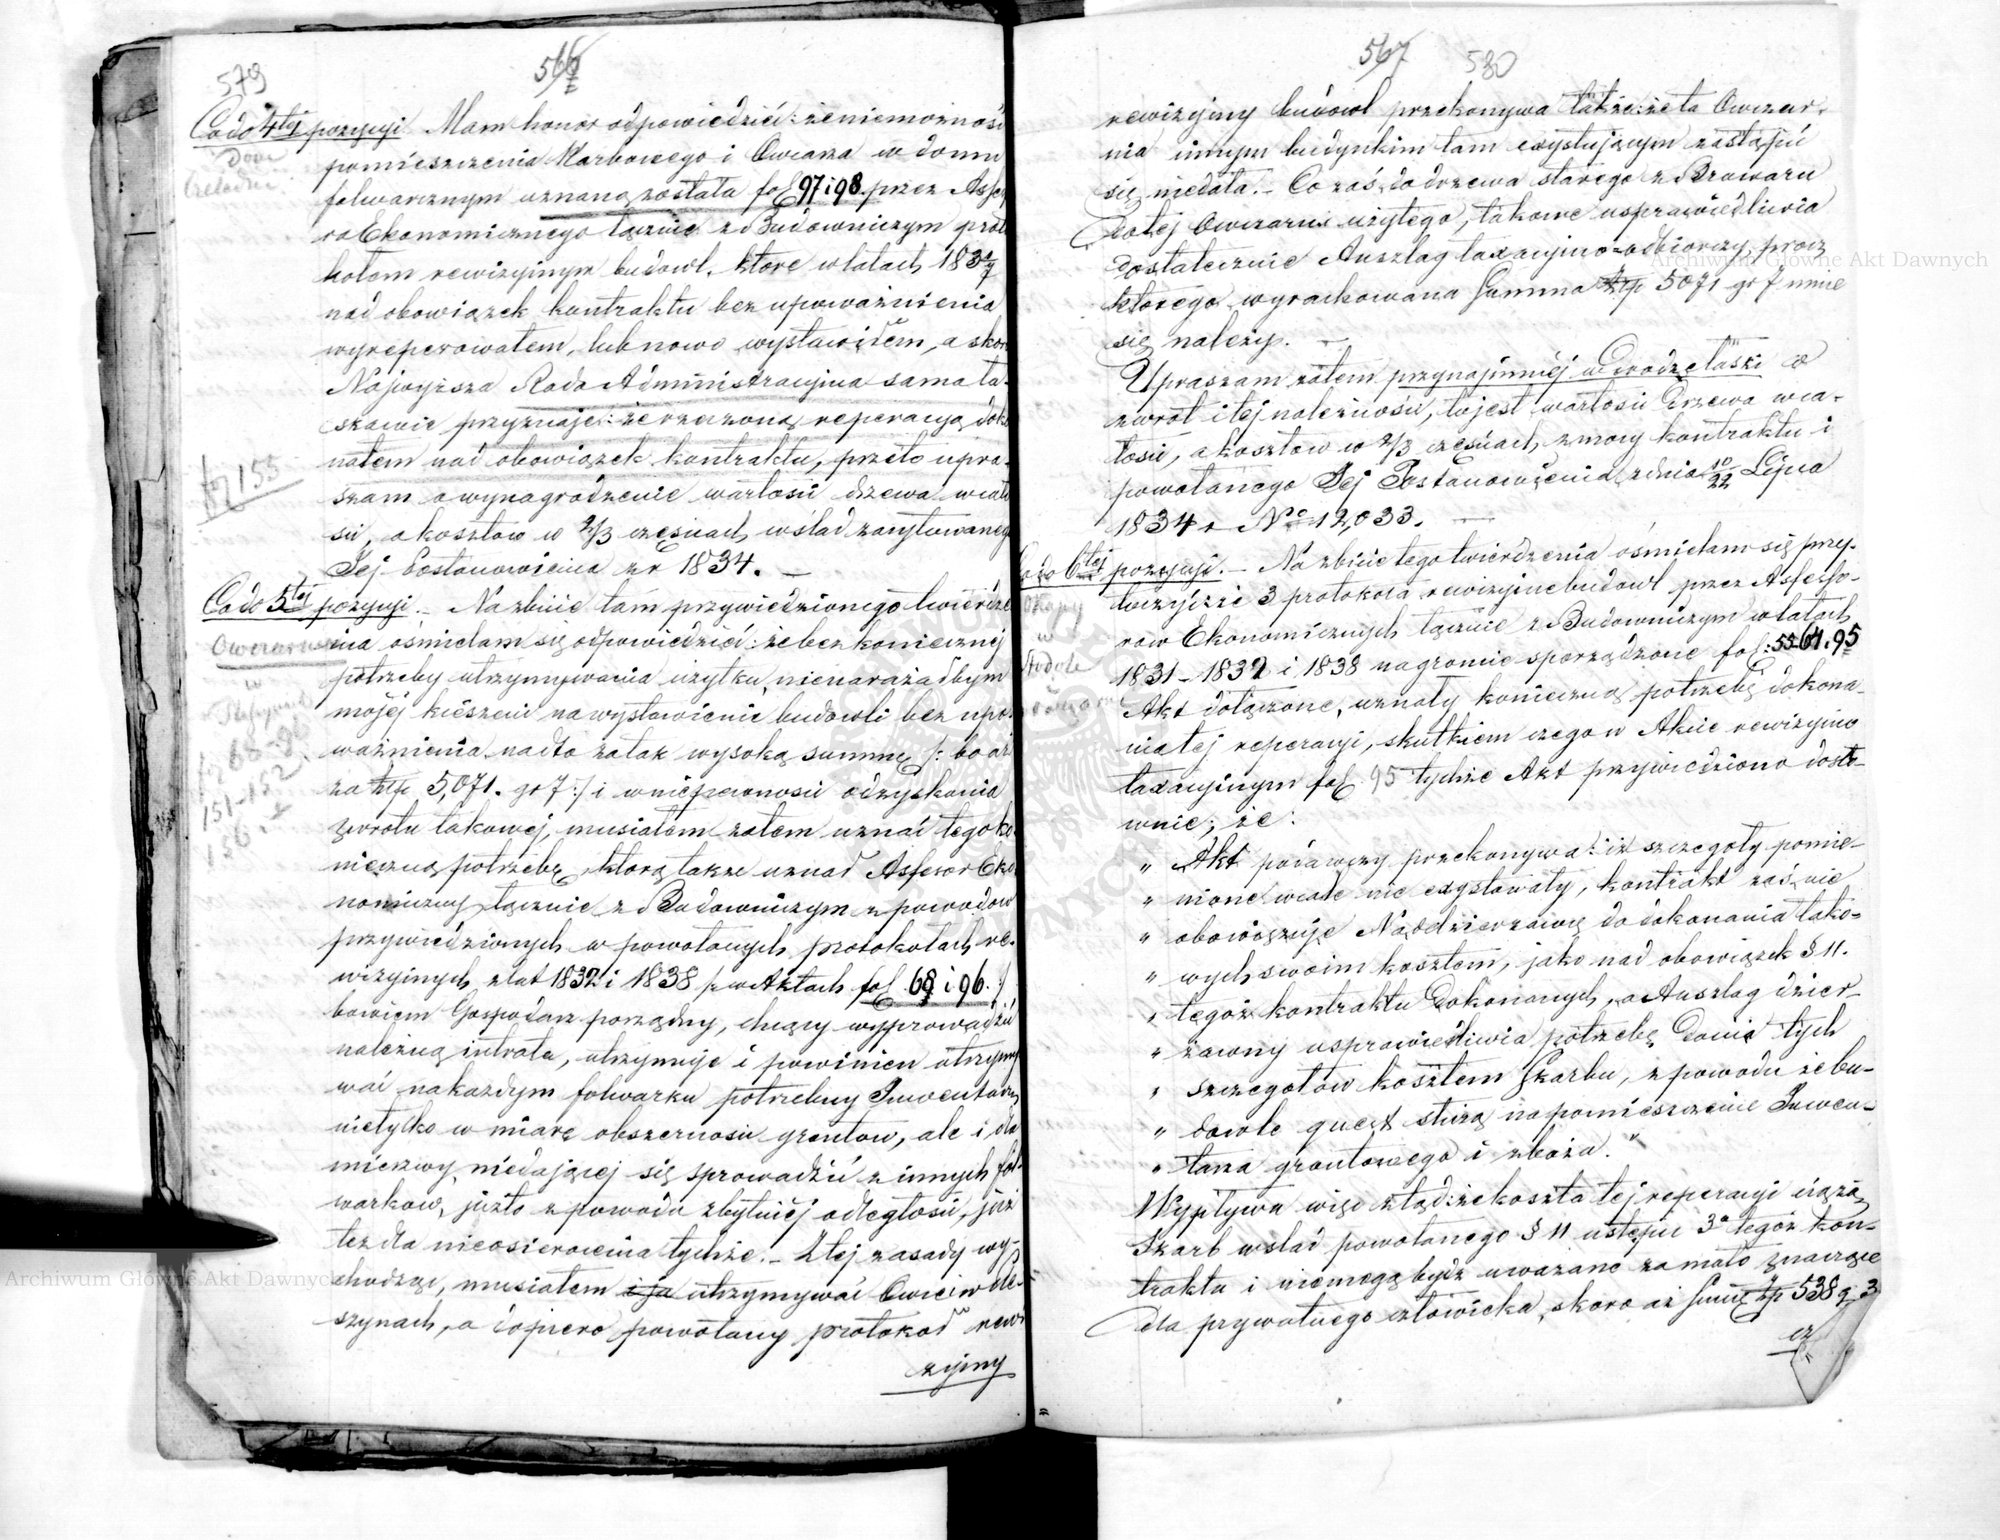 579
566
Co do 4tej pozycyi. Mam honor odpowiedzieć: że niemożność
Dom
Czeladni
pomieszczenia Karbowego i Owcarza w domu
folwarcznym uznaną została fol 97 i 98. przez Asses
ra Ekonomicznego łącznie z Budowniczym proto
kołem rewizyinym budowl, które w latach 183
nad obowiązek kontraktu bez upoważnienia
wyreperowałem, lub nowo wystawiłem, a skoro
Najwyższa Rada Administracyina sama ła-
skawie przyznaje: że rzeczoną reperacyą doko
nałem nad obowiązek kontraktu, przeto upra-
fol 155
szam o wynagrodzenie wartości drzewa w cało
ści, a kosztów w 2/3 częściach wślad zacytowanego
Jej Postanowienia z r 1834. —
Co do 5tej pozycyi. — Na zbicie tam przywiedzionego twierdze
Owczarnia
w
nia ośmielam się odpowiedzieć: że bez koniecznej
potrzeby utrzymywania użytku, nienarażałbym
mojéj kieszeni na wystawienie budowli bez upo-
ważnienia nadto za tak wysoką summę /: bo aż
68-96
151-152
156.
za złp 5,071. gr 7 :/ i w niepewności odzyskania
zwrotu takowej, musiałem zatem uznać tego ko
nieczną potrzebę, którą także uznał Assesor Eko
nomiczny łącznie z Budowniczym z powodów
przywiedzionych w powołanych protokołach re-
wizyinych z lat 1832 i 1838 /: w Aktach fol 69 i 96. :/
bowiem Gospodarz porządny, chcący wyprowadzić
należną intratę, utrzymuje i powinien utrzymy
wać na każdym folwarku potrzebny Inwentarz
nietylko w miarę obszerności gruntów, ale i dla
mierzwy, niedającej się sprowadzić z innych fol-
warków, jużto z powodu zbytniéj odległości, już
też dla nieosierocenia tychże. — Z tej zasady wy-
chodząc, musiałem i ja utrzymywać Owce w Ole
szynach, a dopiero powołany protokoł rewi
zyiny
567
580
rewizyiny budowl przekonywa także: że ta Owczar-
nia innym budynkiem tam exystującym zastąpić
się niedała. — Co zaś do drzewa starego z Browaru
do tej Owczarni użytego, takowe usprawiedliwia
dostatecznie Anszlag taxacyjno-odbiorczy, przez
którego wyrachowana Summa złp 5071 gr 7 mnie
się należy. —
Upraszam zatem przynajmniéj w drodze łaski o
zwrot i tej należności, to jest wartości drzewa w ca-
łości, a kosztów w 2/3 częściach, z mocy kontraktu i
powołanego Jej Postanowienia z dnia 10/22 Lipca
1834 r No 12,033. —
Co do 6tej pozycyi. — Na zbicie tego twierdzenia ośmielam się przy-
w
Stodole
toczyć: że 3 protokoła rewizyine budowl przez Assesso-
rów Ekonomicznych łącznie z Budowniczym w latach
1831 – 1832 i 1838 na gruncie sporządzone fol: 55. 64. 95
Akt dołączone, uznały konieczną potrzebę dokona-
nia tej reperacyi, skutkiem czego w Akcie rewizyino
taxacyjnym fol 95 tychże Akt przywiedziono dosło-
wnie; że:
„ Akt podawczy przekonywa: iż szczegóły pomie-
„ nione wcale nie exystowały, kontrakt zaś nie
„ obowiązuje Naddzierżawcę do dokonania tako-
„ wych swoim kosztem, jako nad obowiązek § 11.
„ tegoż kontraktu dokonanych, a Anszlag dzier-
„ żawny usprawiedliwia potrzebę dania tych
„ szczegółów kosztem Skarbu, z powodu że bu-
„ dowle quest służą na pomieszczenie Inwen-
„ tarza gruntowego i zboża. "
Wypływa więc ztąd: że koszta tej reperacyi ciążą
Skarb wślad powołanego § 11 ustępu 3o tegoż kon-
traktu i niemogą bydź uważane za mało znaczące
dla prywatnego człowieka, skoro aż summę złp 538 g. 3
cz